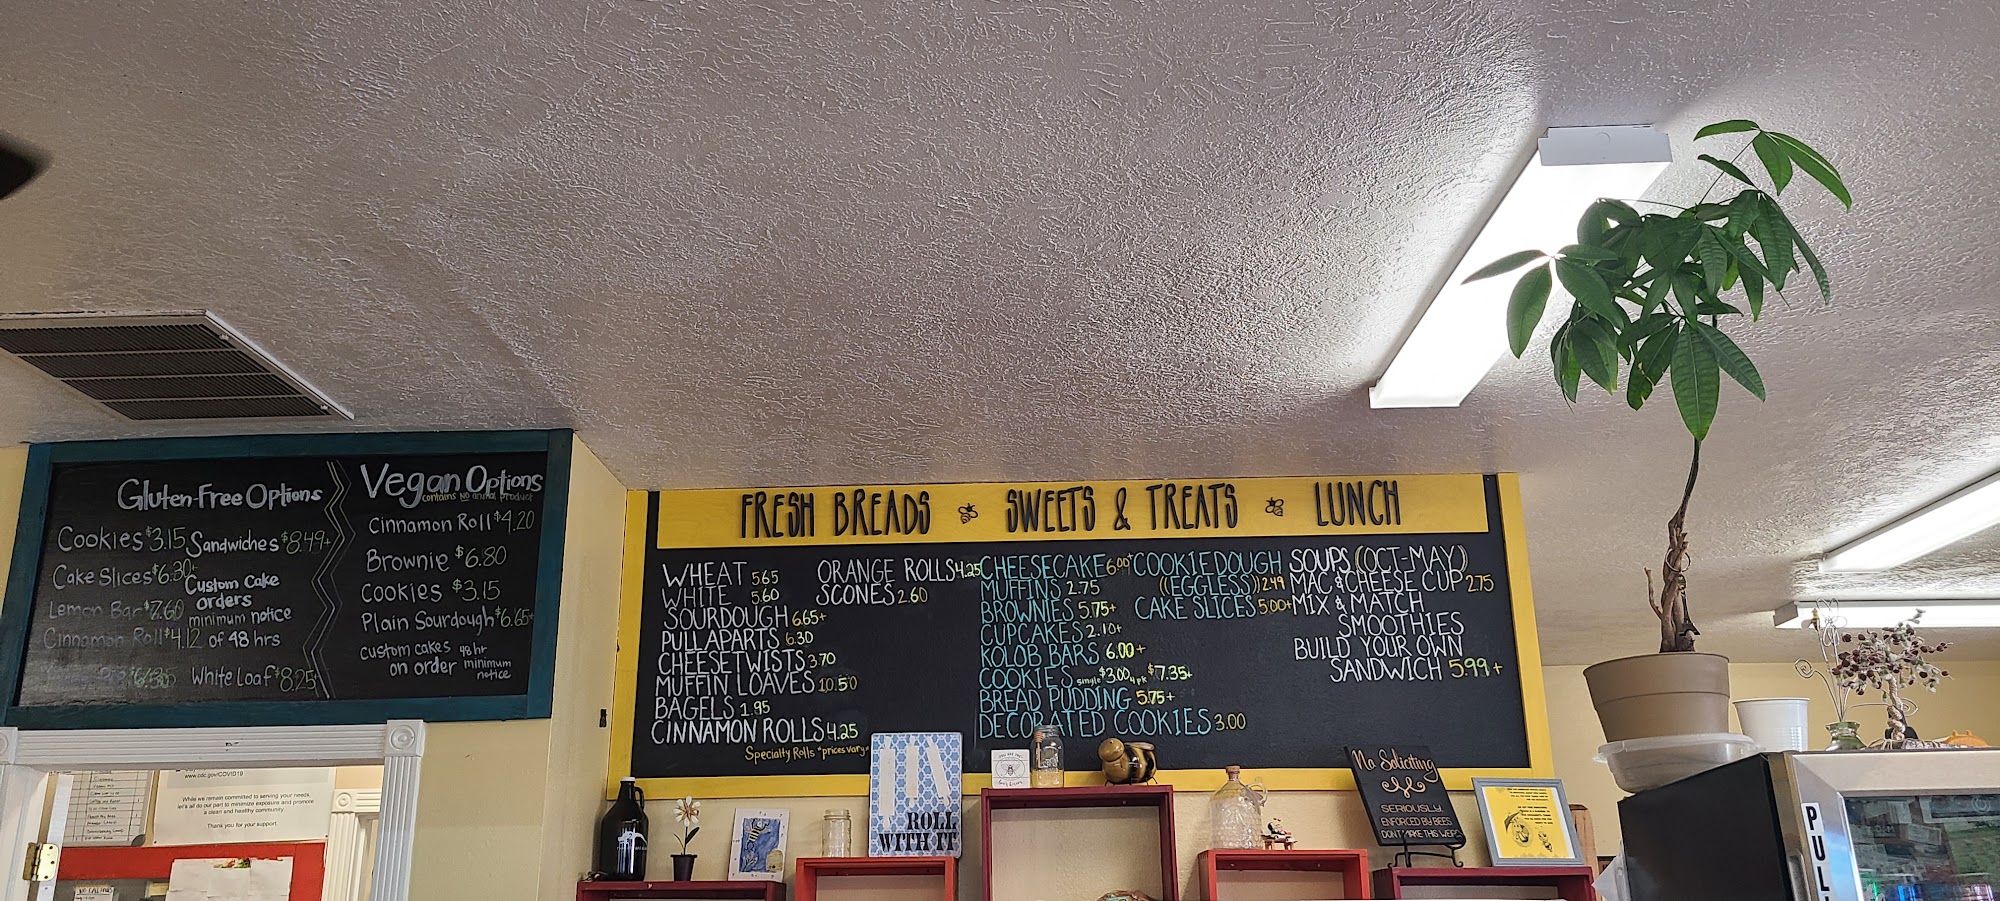 Gluten-Free Options
Cookies $3.15
Cake Slices $6.30+
Lemon Bar $7.60
Cinnamon Roll $4.12
Sandwiches $8.49+
Custom Cake
orders
minimum notice
of 48 hrs
White Loaf $8.25
Vegan Options
contains NO animal product
Cinnamon Roll $4.20
Brownie $6.80
Cookies $3.15
Plain Sourdough $6.65+
custom cakes 48 hr
on order minimum
notice
FRESH BREADS SWEETS & TREATS LUNCH
WHEAT 5.65
WHITE 5.60
SOURDOUGH 6.65+
PULLAPARTS 6.30
CHEESETWISTS 3.70
MUFFIN LOAVES 10.50
BAGELS 1.95
CINNAMON ROLLS 4.25
Specialty Rolls *prices vary*
ORANGE ROLLS 4.25
SCONES 2.60
CHEESECAKE 6.00+
MUFFINS 2.75
BROWNIES 5.75+
CUPCAKES 2.10+
KOLOB BARS 6.00+
COOKIES single $3.00 4pk $7.35+
BREAD PUDDING 5.75+
DECORATED COOKIES 3.00
COOKIEDOUGH
((EGGLESS)) 2.49
CAKE SLICES 5.00+
SOUPS (OCT-MAY)
MAC & CHEESE CUP 2.75
MIX & MATCH
SMOOTHIES
BUILD YOUR OWN
SANDWICH 5.99+
www.cdc.gov/COVID19
While we remain committed to serving your needs,
let's all do our part to minimize exposure and promote
a clean and healthy community.
Thank you for your support.
ROLL
WITH IT
No Soliciting
SERIOUSLY.
ENFORCED BY BEES
DON'T MAKE THIS WEIRD
PULL